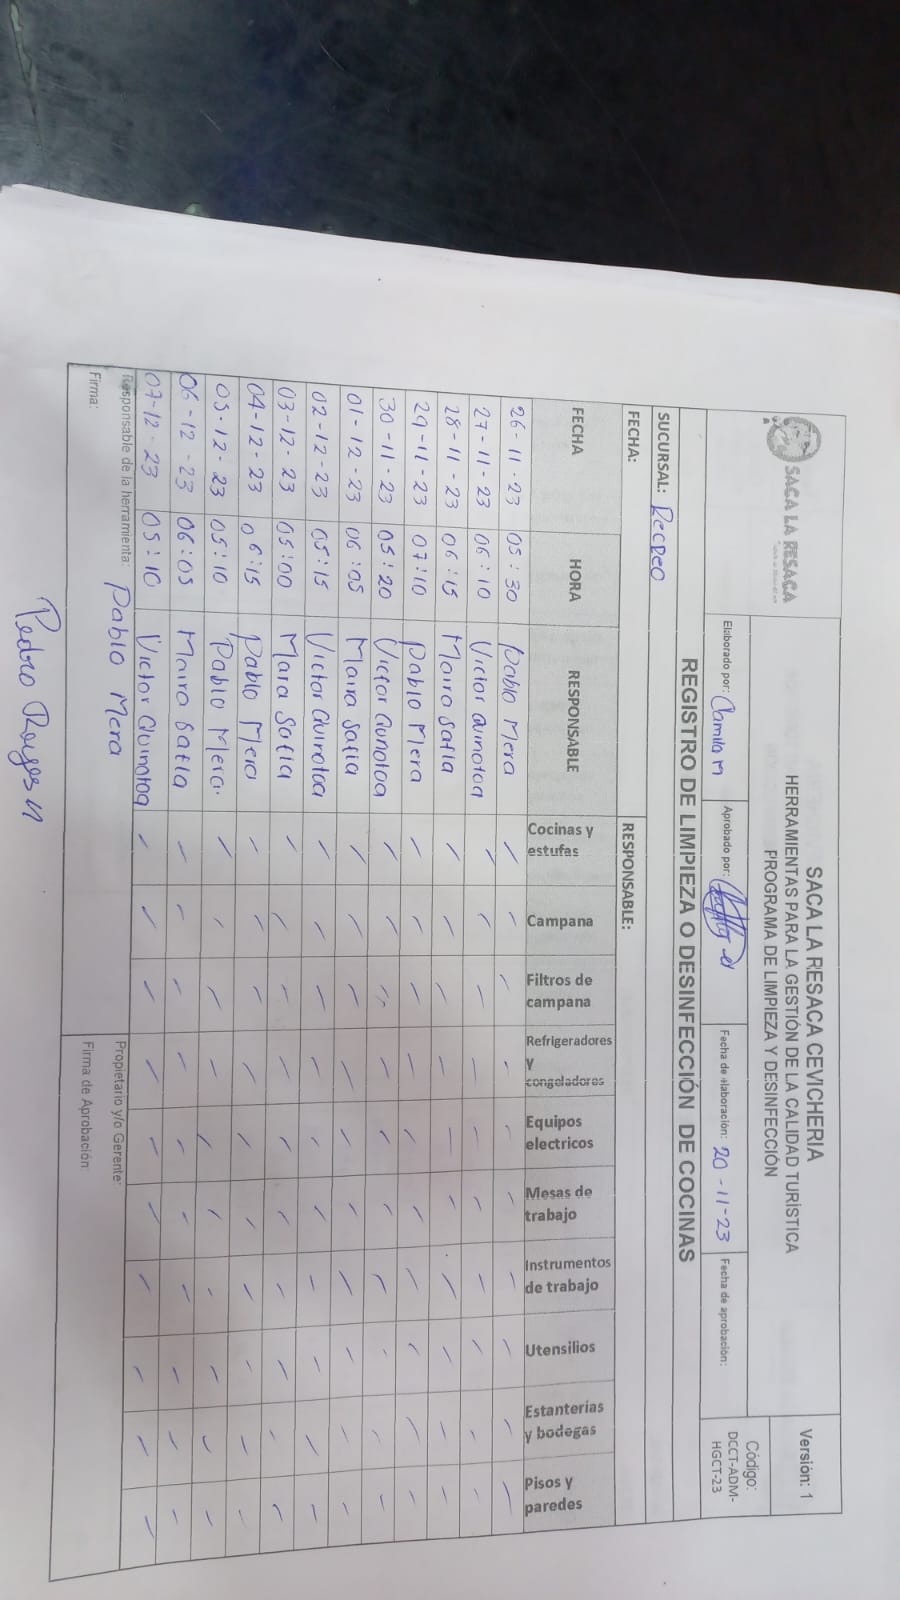 SACA LA RESACA
SACA LA RESACA CEVICHERIA
HERRAMIENTAS PARA LA GESTIÓN DE LA CALIDAD TURÍSTICA
PROGRAMA DE LIMPIEZA Y DESINFECCIÓN
Versión: 1
Código:
DCCT-ADM-
HGCT-23
Elaborado por: Camila M
Aprobado por:
Fecha de elaboración: 20-11-23
Fecha de aprobación:
REGISTRO DE LIMPIEZA O DESINFECCIÓN DE COCINAS
SUCURSAL: Recreo
FECHA:
RESPONSABLE:
FECHA HORA RESPONSABLE Cocinas y estufas Campana Filtros de campana Refrigeradores y congeladores Equipos electricos Mesas de trabajo Instrumentos de trabajo Utensilios Estanterías y bodegas Pisos y paredes
26-11-23 05:30 Pablo Mera ✓ ✓ ✓ ✓ ✓ ✓ ✓ ✓ ✓ ✓
27-11-23 06:10 Victor Quinotoa ✓ ✓ ✓ ✓ ✓ ✓ ✓ ✓ ✓ ✓
28-11-23 06:15 Maira Satla ✓ ✓ ✓ ✓ ✓ ✓ ✓ ✓ ✓ ✓
29-11-23 07:10 Pablo Mera ✓ ✓ ✓ ✓ ✓ ✓ ✓ ✓ ✓ ✓
30-11-23 05:20 Victor Qunotoa ✓ ✓ ✓ ✓ ✓ ✓ ✓ ✓ ✓ ✓
01-12-23 06:05 Maira Satla ✓ ✓ ✓ ✓ ✓ ✓ ✓ ✓ ✓ ✓
02-12-23 05:15 Victor Quinotoa ✓ ✓ ✓ ✓ ✓ ✓ ✓ ✓ ✓ ✓
03-12-23 05:00 Mara Satla ✓ ✓ ✓ ✓ ✓ ✓ ✓ ✓ ✓ ✓
04-12-23 06:15 Pablo Mera ✓ ✓ ✓ ✓ ✓ ✓ ✓ ✓ ✓ ✓
05-12-23 05:10 Pablo Mera. ✓ ✓ ✓ ✓ ✓ ✓ ✓ ✓ ✓ ✓
06-12-23 06:05 Maira Satla ✓ ✓ ✓ ✓ ✓ ✓ ✓ ✓ ✓ ✓
07-12-23 05:10 Victor Quinotoa ✓ ✓ ✓ ✓ ✓ ✓ ✓ ✓ ✓ ✓
Responsable de la herramienta: Pablo Mera
Propietario y/o Gerente:
Firma:
Firma de Aprobación:
Pedro Reyes N